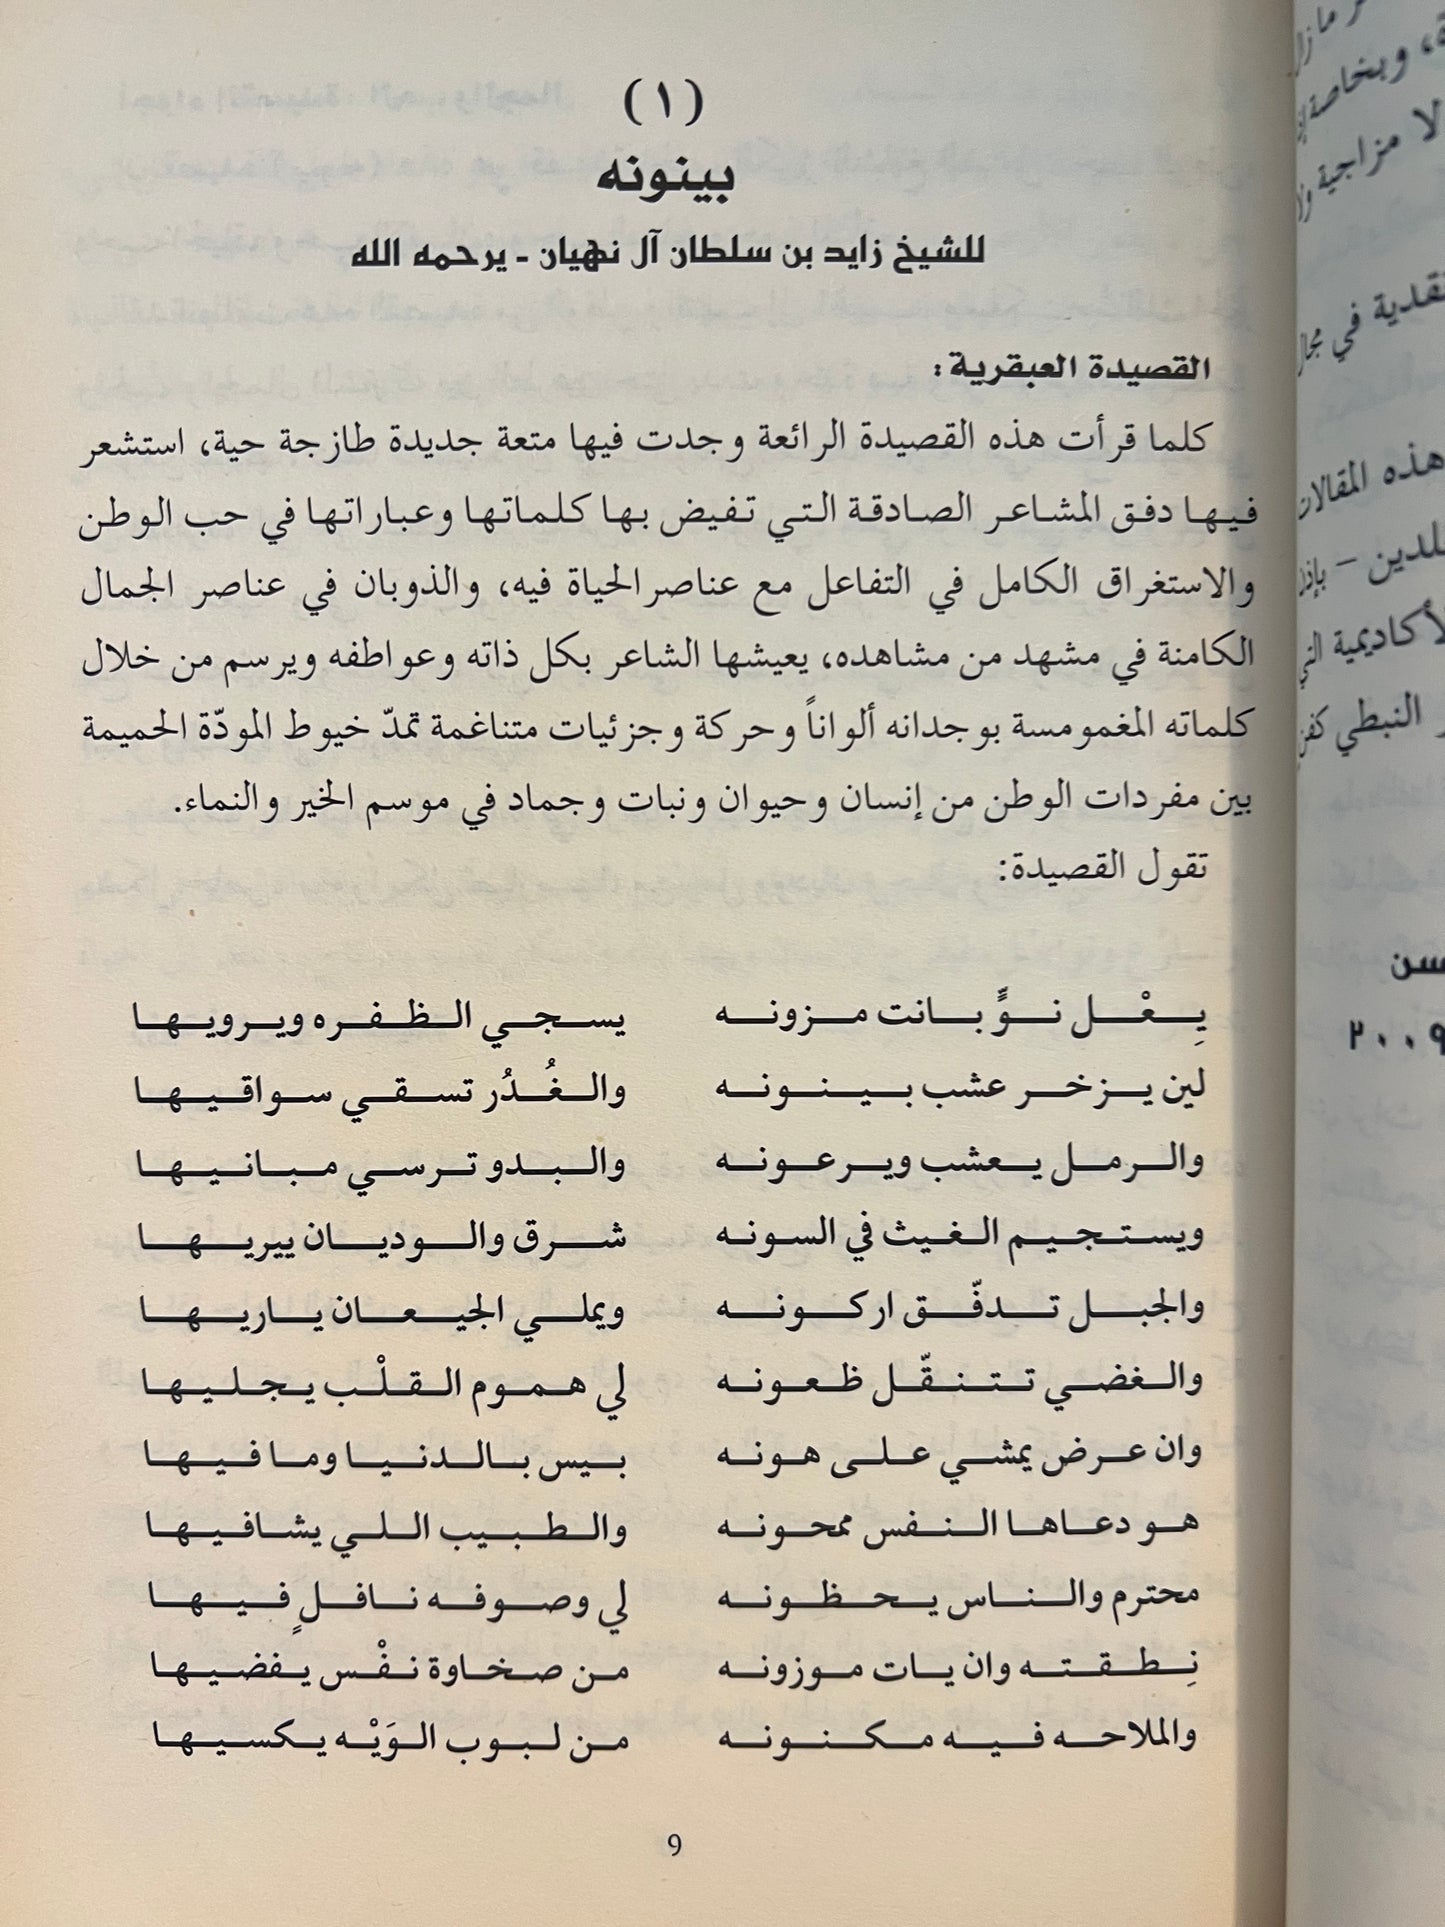 (١)
بينونه
للشيخ زايد بن سلطان آل نهيان - يرحمه الله
القصيدة العبقرية:
كلما قرأت هذه القصيدة الرائعة وجدت فيها متعة جديدة طازجة حية، استشعر
فيها دفق المشاعر الصادقة التي تفيض بها كلماتها وعباراتها في حب الوطن
والاستغراق الكامل في التفاعل مع عناصر الحياة فيه، والذوبان في عناصر الجمال
الكامنة في مشهد من مشاهده، يعيشها الشاعر بكل ذاته وعواطفه ويرسم من خلال
كلماته المغمومسة بوجدانه ألواناً وحركة وجزئيات متناغمة تمدّ خيوط المودّة الحميمة
بين مفردات الوطن من إنسان وحيوان ونبات وجماد في موسم الخير والنماء.
تقول القصيدة:
يِعْل نوٍّ بانت مزونه يسجي الظفره ويرويها
لين يزخر عشب بينونه والغُدُر تسقي سواقيها
والرمل يعشب ويرعونه والبدو ترسي مبانيها
ويستجيم الغيث في السونه شرق والوديان ييريها
والجبل تدفّق اركونه ويملي الجيعان ياريها
والغضي تتنقّل ظعونه لي هموم القلْب يجليها
وان عرض يمشي على هونه بيس بالدنيا وما فيها
هو دعاها النفس ممحونه والطبيب اللي يشافيها
محترم والناس يحظونه لي وصوفه نافلٍ فيها
نِطقته وان يات موزونه من صخاوة نفْس يفضيها
والملاحه فيه مكنونه من لبوب الوَيْه يكسيها
9
ر مازال
ة، وبخاصة
لا مزاجية
نقدية في مجال
هذه المقالات
لدين -
لأكاديمية
النبطي
سن
٢٠٠٩